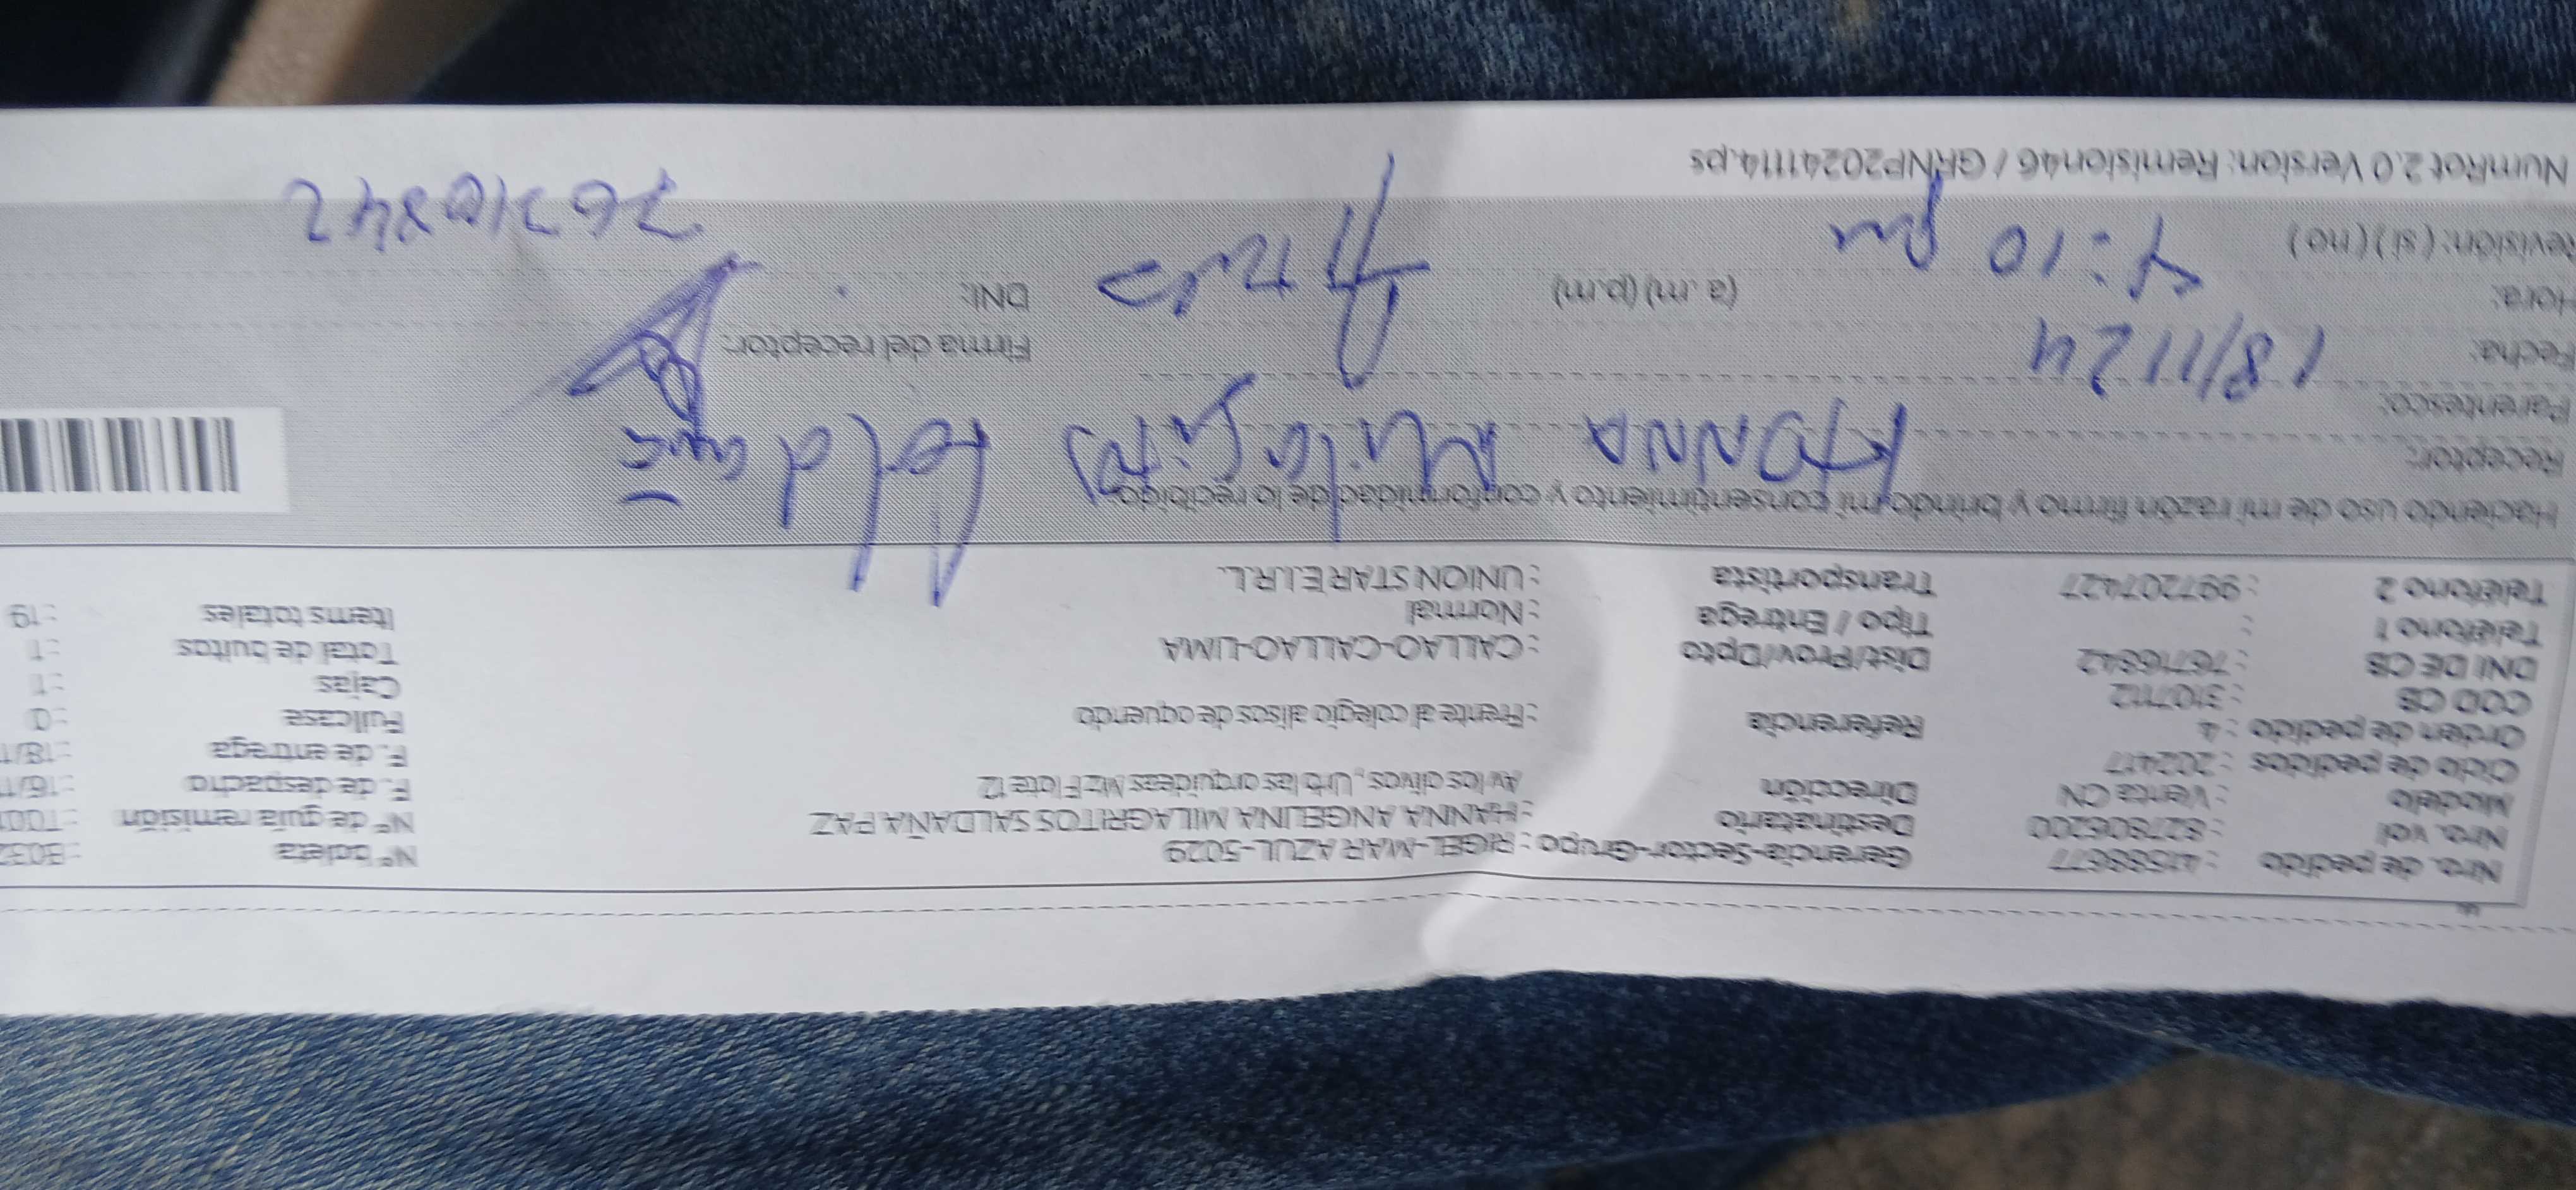 Nro. de pedido : 41588677 Gerencia-Sector-Grupo : RIGEL-MAR AZUL-5029 N° boleta : B032
Nro. vol : 827806200 Destinatario : HANNA ANGELINA MILAGRITOS SALDAÑA PAZ N° de guia remisión : T001
Modelo : Venta CN Dirección Av los olivos, Urb las orquideas Mz F lote 12 F. de despacho : 16/11
Ciclo de pedidos : 202417 F. de entrega : 18/1
Orden de pedido : 4 Referencia : Frente al colegio alisos de oquendo Fullcase : 0
COD CB : 3107112 Cajas : 1
DNI DE CB : 76716842 Dist/Prov/Dpto : CALLAO-CALLAO-LIMA Total de bultos : 1
Teléfono 1 : Tipo / Entrega : Normal Items totales : 19
Teléfono 2 : 997207427 Transportista : UNION STAR E.I.R.L.
Haciendo uso de mi razón firmo y brindo mi consentimiento y conformidad de lo recibido.
Receptor: Milagritos
Parentesco:
Fecha: 18/11/24 Firma del receptor:
Hora: (a.m) (p.m) DNI:
Revisión: (si) (no) :10 pm
NumRot 2.0 Version: Remision46 / GRNP20241114.ps